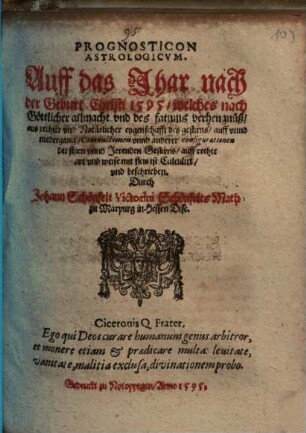 95
PROGNOSTICON
ASTROLOGICVM.
Auff das Jhar nach
der Geburt Christi 1595/ welches nach
Göttlicher allmacht vnd des fatums verhengnüß/
aus rechter vnd Natürlicher eygenschafft des gestirns/ auff vnnd
niedergang/ Coniunctionen vnnd anderer configurationen
der fixen vnnd Irrenden Gestirns/ auff rechte
art vnd weise mit fleiß ist Calculirt/
vnd beschrieben.
Durch
Johann Schönfelt Victorini Schönfelts Math:
zu Marpurg in Hessen
Ciceronis Q. Frater.
Ego qui Deos curare humanum genus arbitror,
et monere etiam & prædicare multa: leuitate,
vanitate, malitia exclusa, diuinationem probo.
Gedruckt zu Anno 1595.